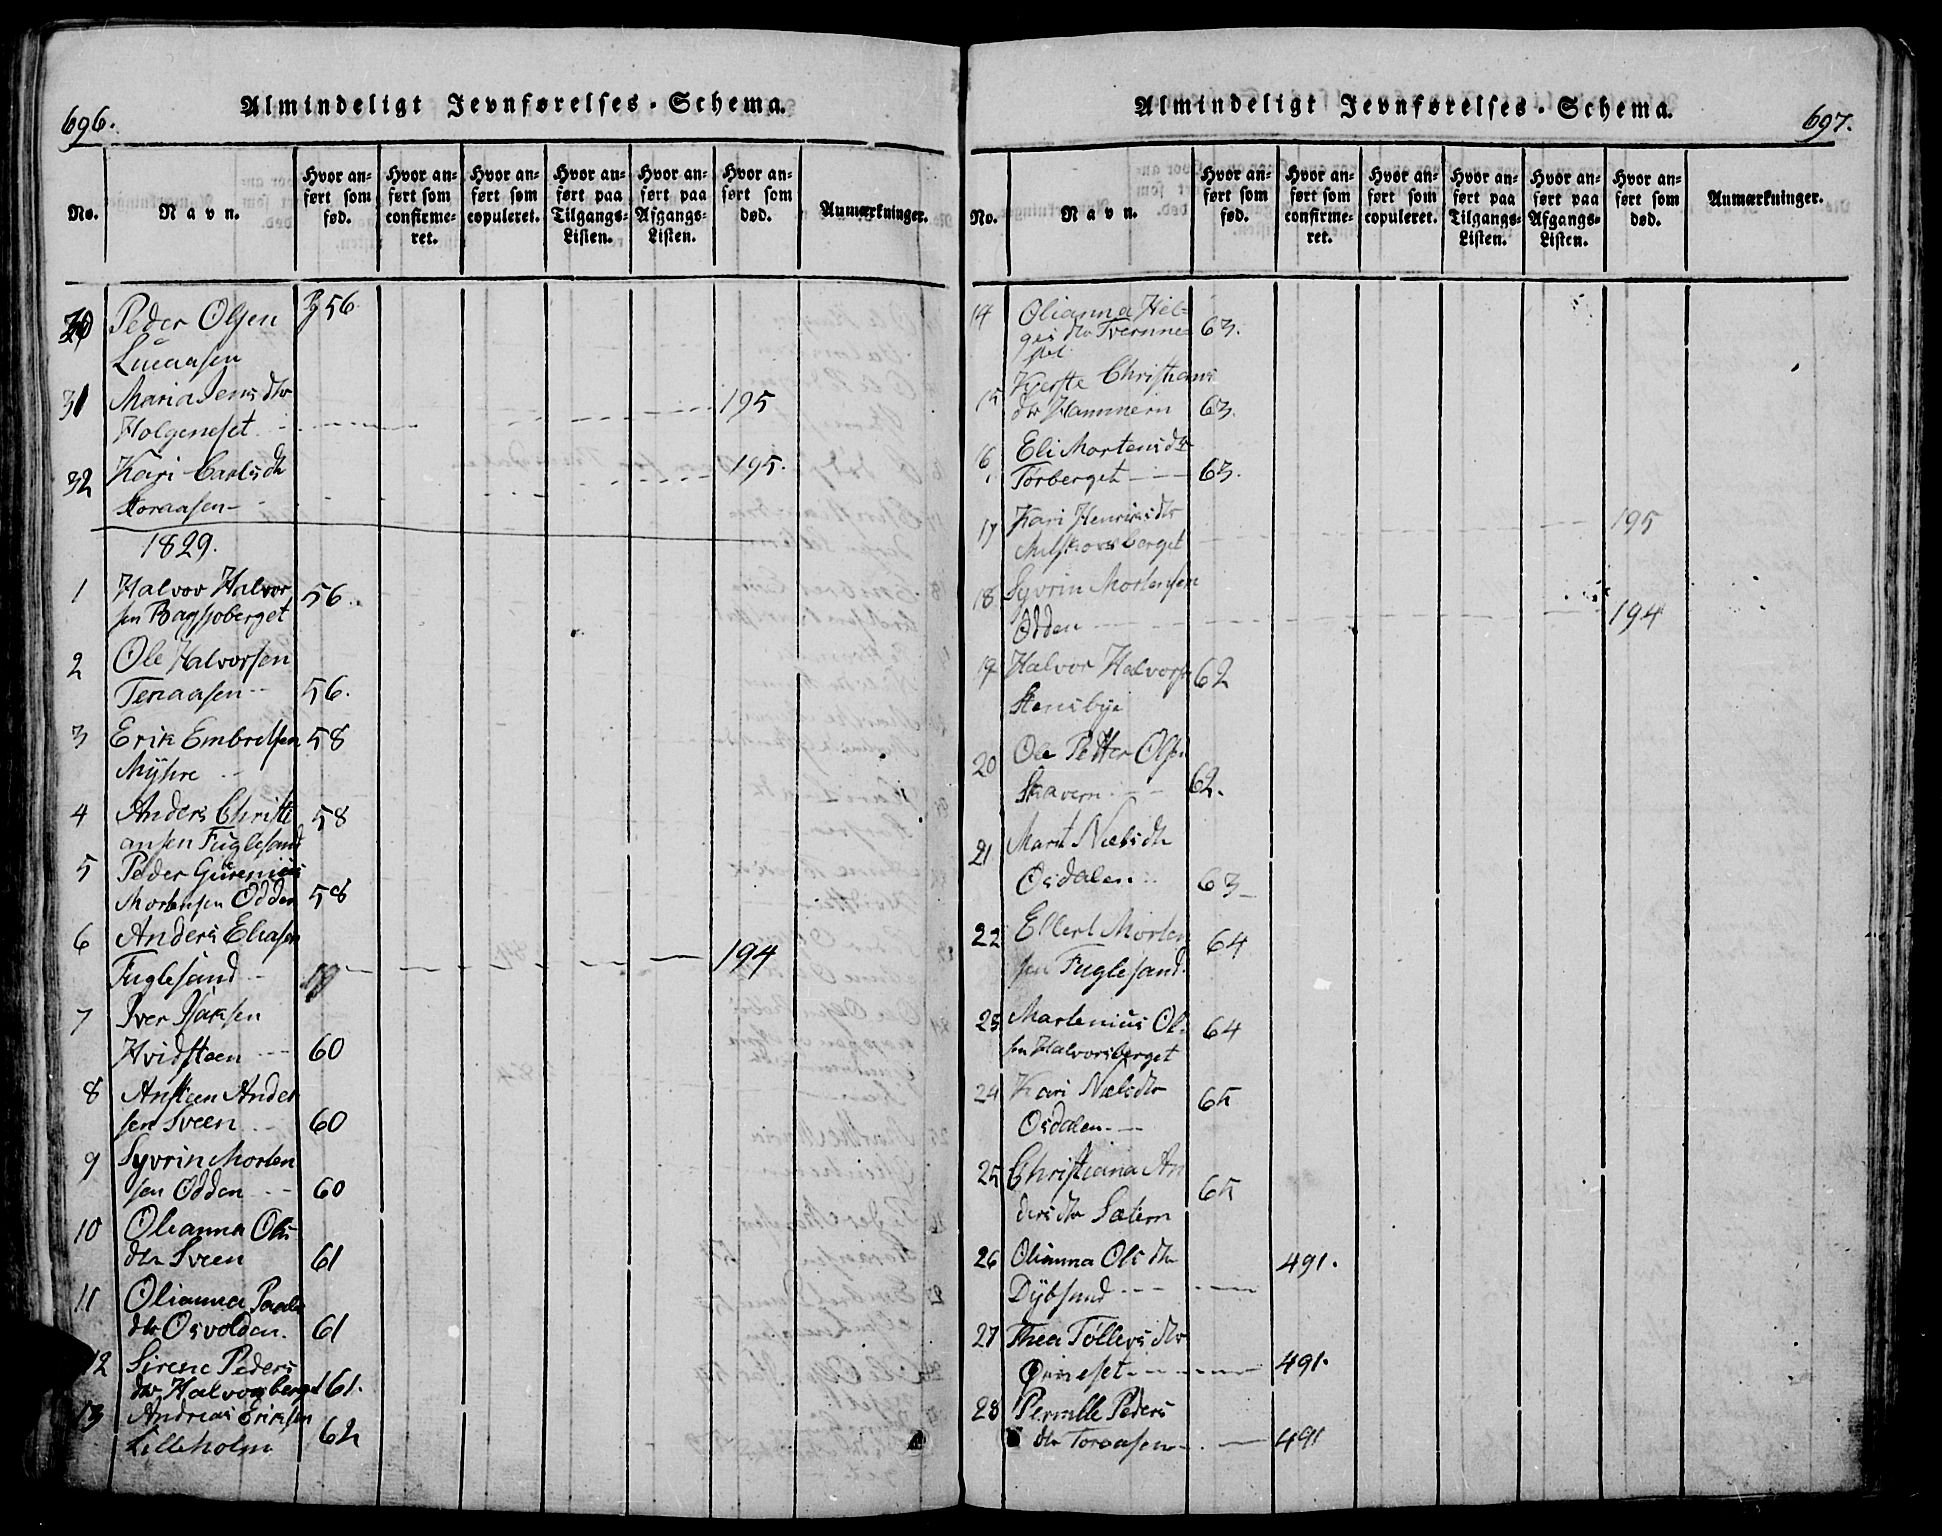 696.
Almindeligt Jevnførelses-Schema.
No. Navn. Hvor anført som fød. Hvor anført som confirmeret. Hvor anført som copuleret. Hvor anført paa Tilgangs-Listen. Hvor anført paa Afgangs-Listen. Hvor anført som død. Anmærkninger.
30 Peder Olsen 56
31 Maria Jens dtr
Holgeneset 195
32 Kari Carls dtr
Storaasen 195.
1829.
1 Halvor Halvor
sen Bagsjoberget 56
2 Ole Halvorsen
Teraasen 56.
3 Erik Embretsen 58
Myhre
4 Anders Christi 58
ansen Fuglesand
5 Peder
Mortensen Odden 58
6 Anders Eliasen
Fuglesand 194
7 Iver Isaksen
Hvidsteen 60
8 Ansteen Ander
sen Sveen 60
9 Syvrin Morten
sen Odden 60
10 Olianna Ols
dtr Sveen 61
11 Olianna Paals
dtr Osvolden. 61
12 Sirene Peders
dtr Halvorsberget 61.
13 Andreas Eriksen 62
Lilleholm
697.
Almindeligt Jevnførelses-Schema.
No. Navn. Hvor anført som fød. Hvor anført som confirmeret. Hvor anført som copuleret. Hvor anført paa Tilgangs-Listen. Hvor anført paa Afgangs-Listen. Hvor anført som død. Anmærkninger.
14 Olianna Hel-
ges dtr Tvernne- 63.
set
15 Kjerste Christians
dtr Hammern 63.
16 Eli Mortens dtr
Torberget 63.
17 Kari Henriks dtr 195
18 Syvrin Mortensen
Odden 194
19 Halvor Halvorsen 62
Stensbye
20 Ole Petter Olsen
Skavern 62.
21 Marit Niels dtr
Osdalen 63
22 Ellert Morten 64
sen Fuglesand
23 Martenius Ol- 64
sen Halvorsberget
24 Kari Niels dtr 65
Osdalen
25 Christiana An 65
ders dtr Sætern
26 Olianna Ols dtr 491.
Dybsand
27 Thea Tøllevs dtr
491.
28 Pernille Peders
dtr Toraasen 491